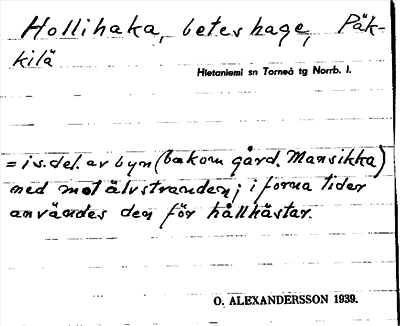 Hollihaka, beteshage, Päk-
kilä
Hietaniemi sn Torneå tg Norrb. l.
= i s. del. av byn (bakom gård. Mansikka)
ned mot älvstranden; i forna tider
användes den för hållhästar.
O. ALEXANDERSSON 1939.